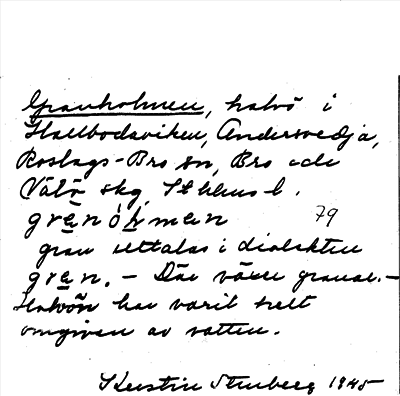 Granholmen, halvö i
Hallbodaviken, Andersvedja,
Roslags-Bro sn, Bro och
Vätö skg, Sthlms l.
grä̱nòẖmen 79
gran uttalas i dialekten
grä̱n. – Där växer granar. –
Halvön har varit helt
omgiven av vatten.
Kerstin Stenberg 1945